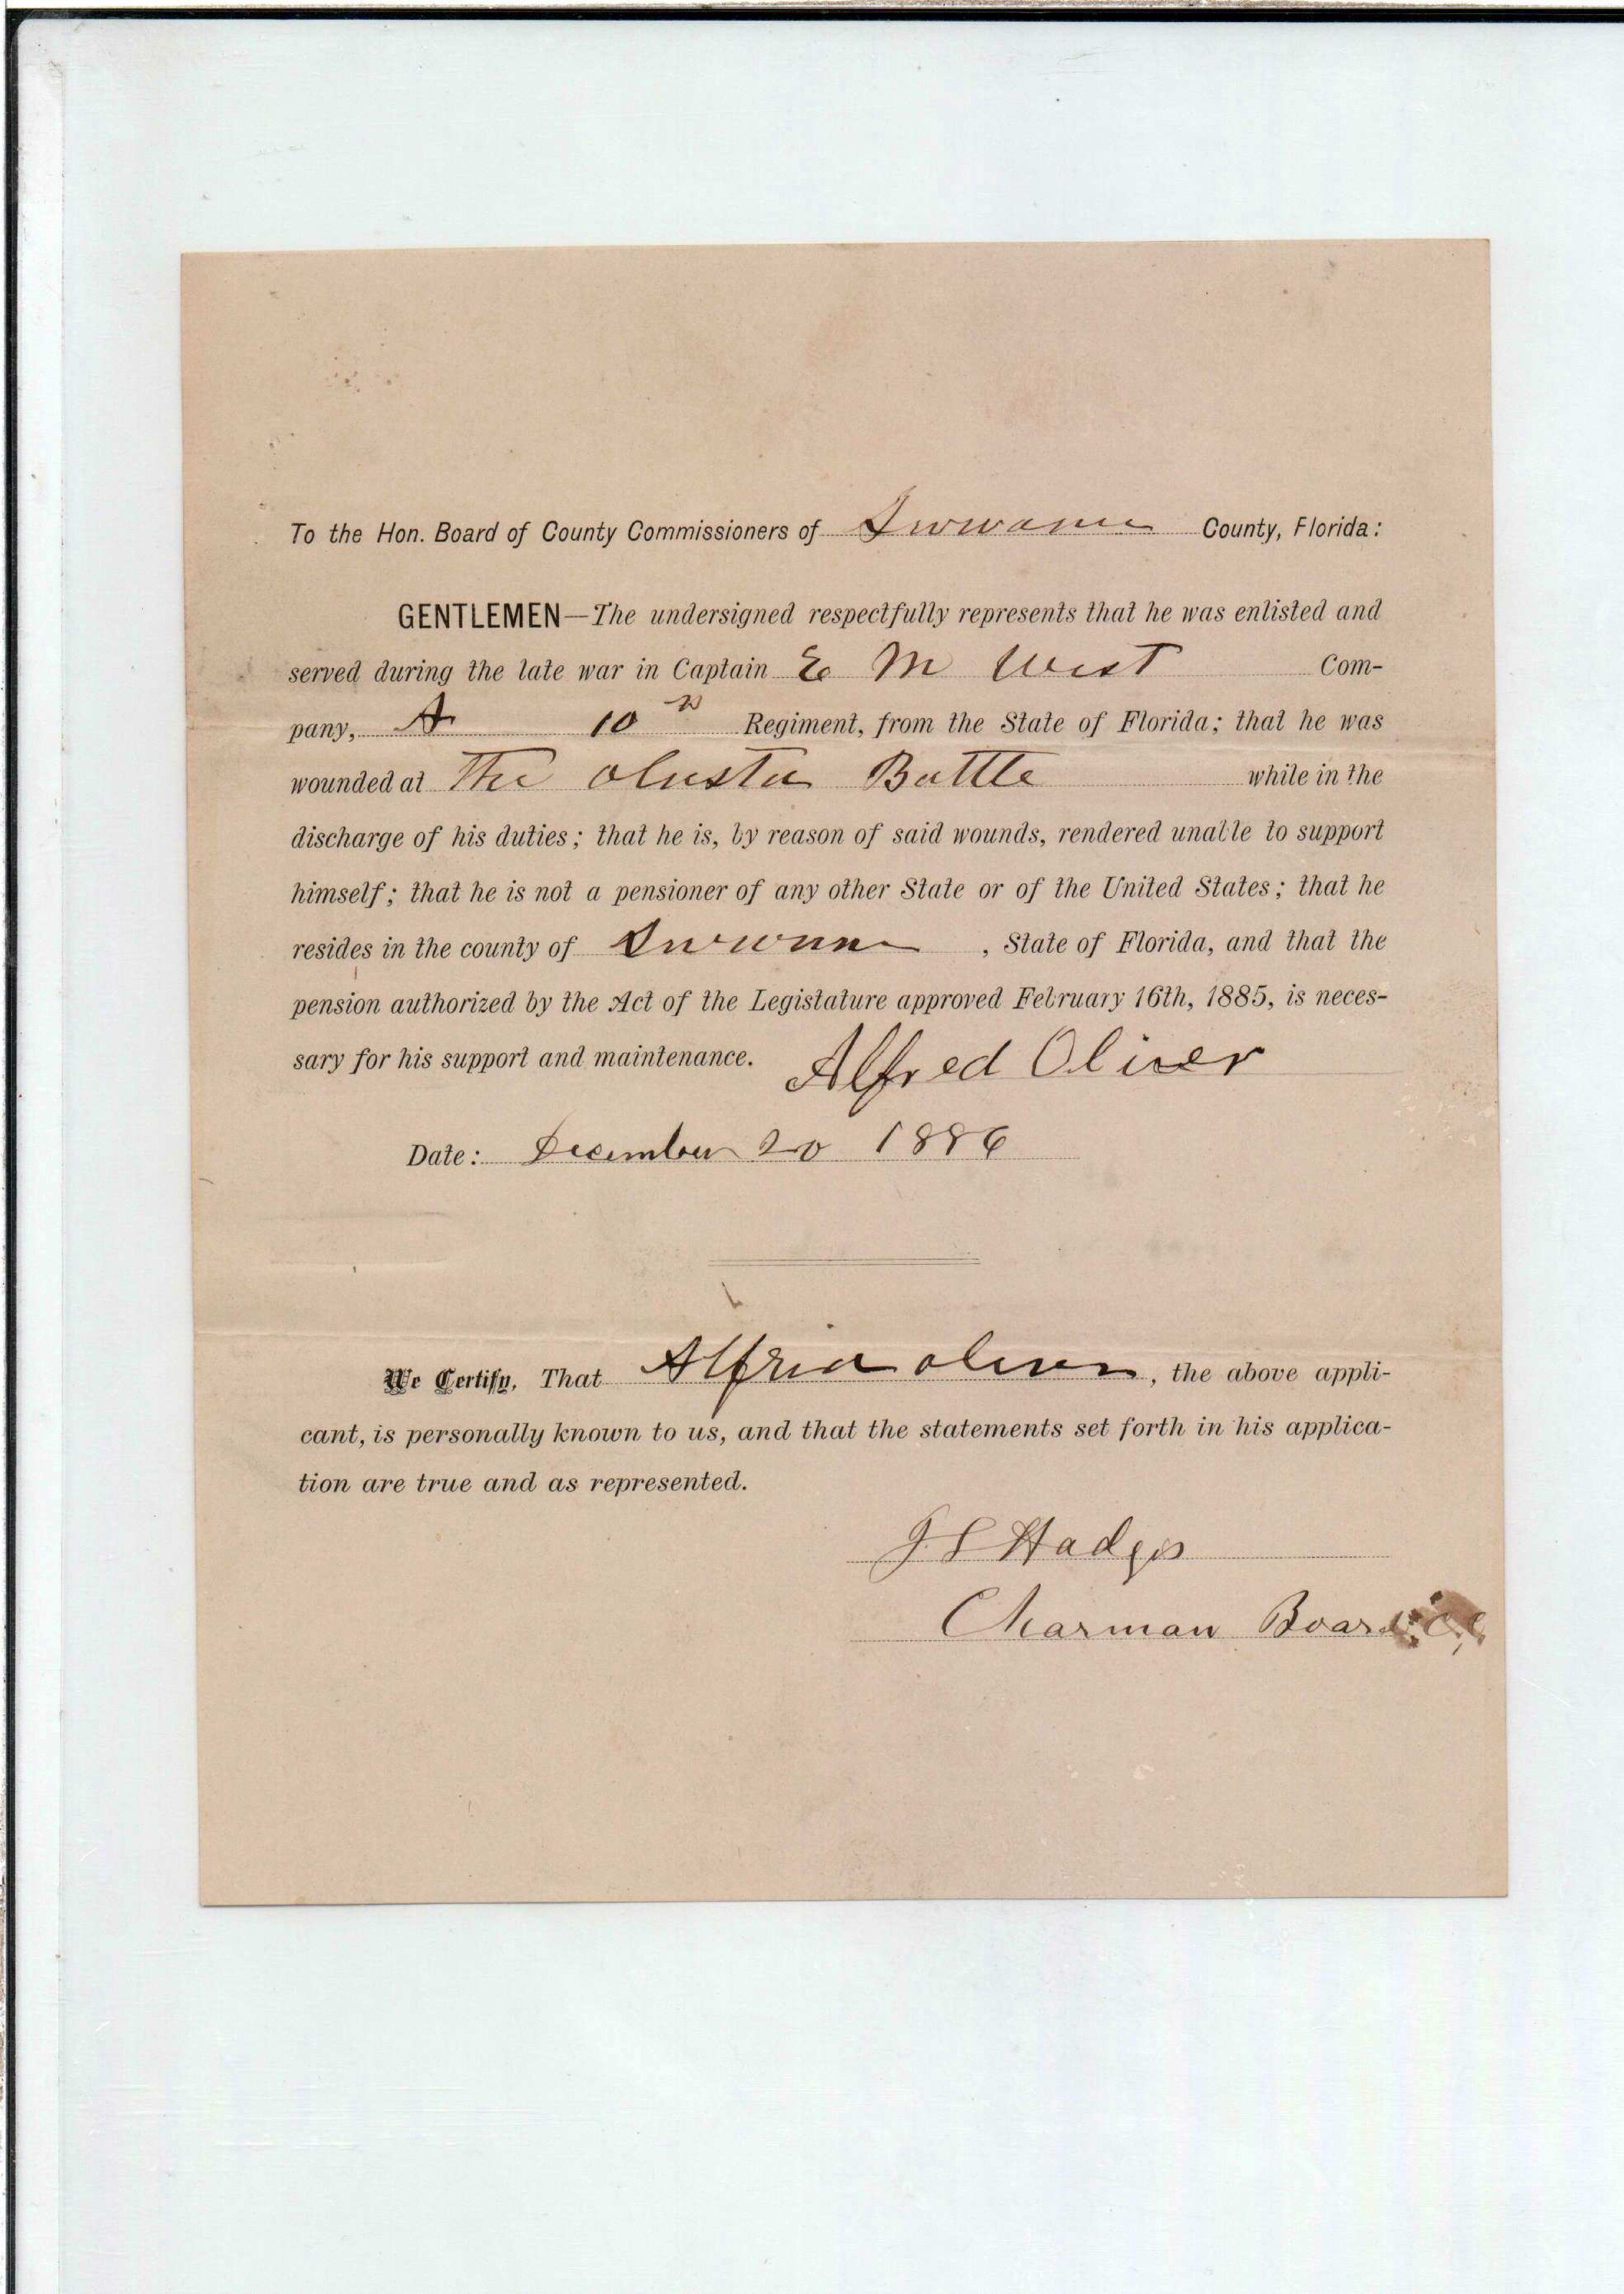 To the Hon. Board of County Commissioners of Suwanee County, Florida:
GENTLEMEN—The undersigned respectfully represents that he was enlisted and
served during the late war in Captain E M West Com-
pany, A 10th Regiment, from the State of Florida; that he was
wounded at The olustee Battle while in the
discharge of his duties; that he is, by reason of said wounds, rendered unable to support
himself; that he is not a pensioner of any other State or of the United States; that he
resides in the county of Suwanee, State of Florida, and that the
pension authorized by the Act of the Legistature approved February 16th, 1885, is neces-
sary for his support and maintenance. Alfred Oliver
Date: December 20 1886
We Certify, That Alfred oliver, the above appli-
cant, is personally known to us, and that the statements set forth in his applica-
tion are true and as represented.
J S Hadges
Charman Board